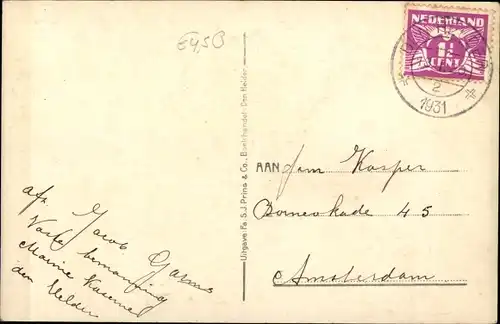 E4,50
NEDERLAND
1½
CENT
2
1931
Uitgave: Fa. S.J. Prins & Co., Boekhandel - Den Helder.
AAN Jam Kasper
Borneokade 45
Amsterdam
afz. Jacob Garms
Vaste bemanning
Marine Kazerne
den Helder